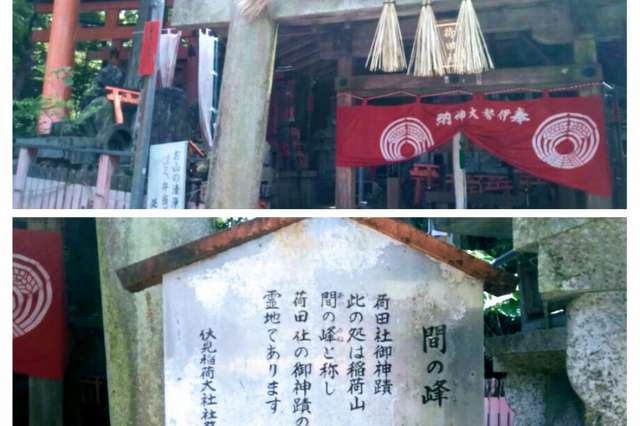 荷田
奉伊勢大神納
お山の清浄
間の峰
荷田社御神蹟
此の処は稲荷山
間の峰と称し
荷田社の御神蹟の
霊地であります
伏見稲荷大社社